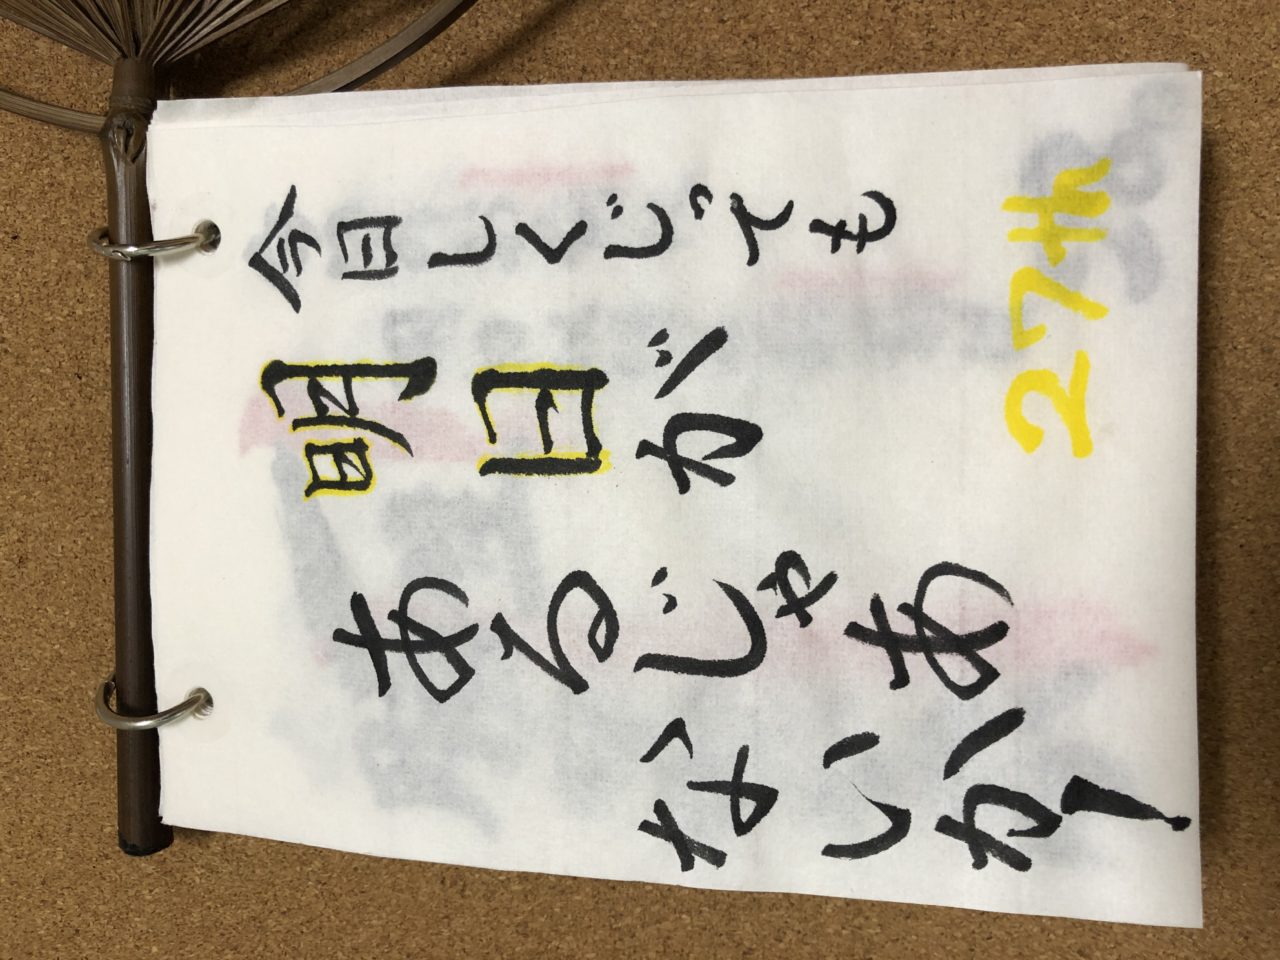 今日しくじっても
明日が
あるじゃあ
ないか!
27th